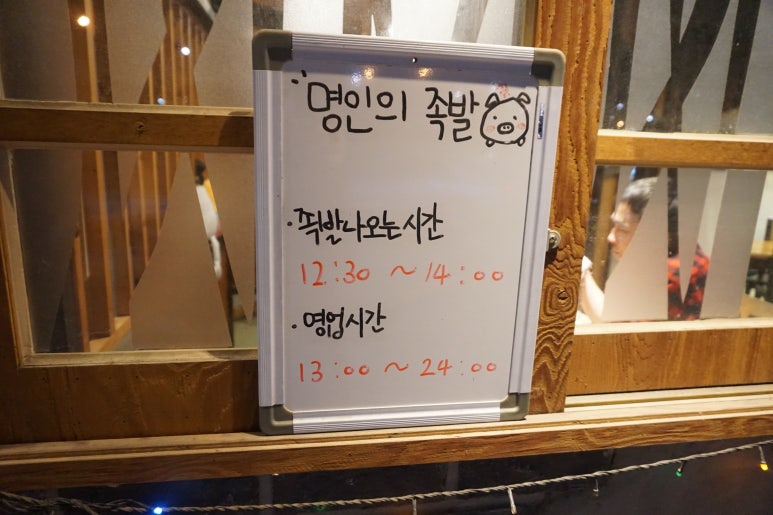 명인의 족발
·족발나오는시간
12:30 ~ 14:00
·영업시간
13:00 ~ 24:00